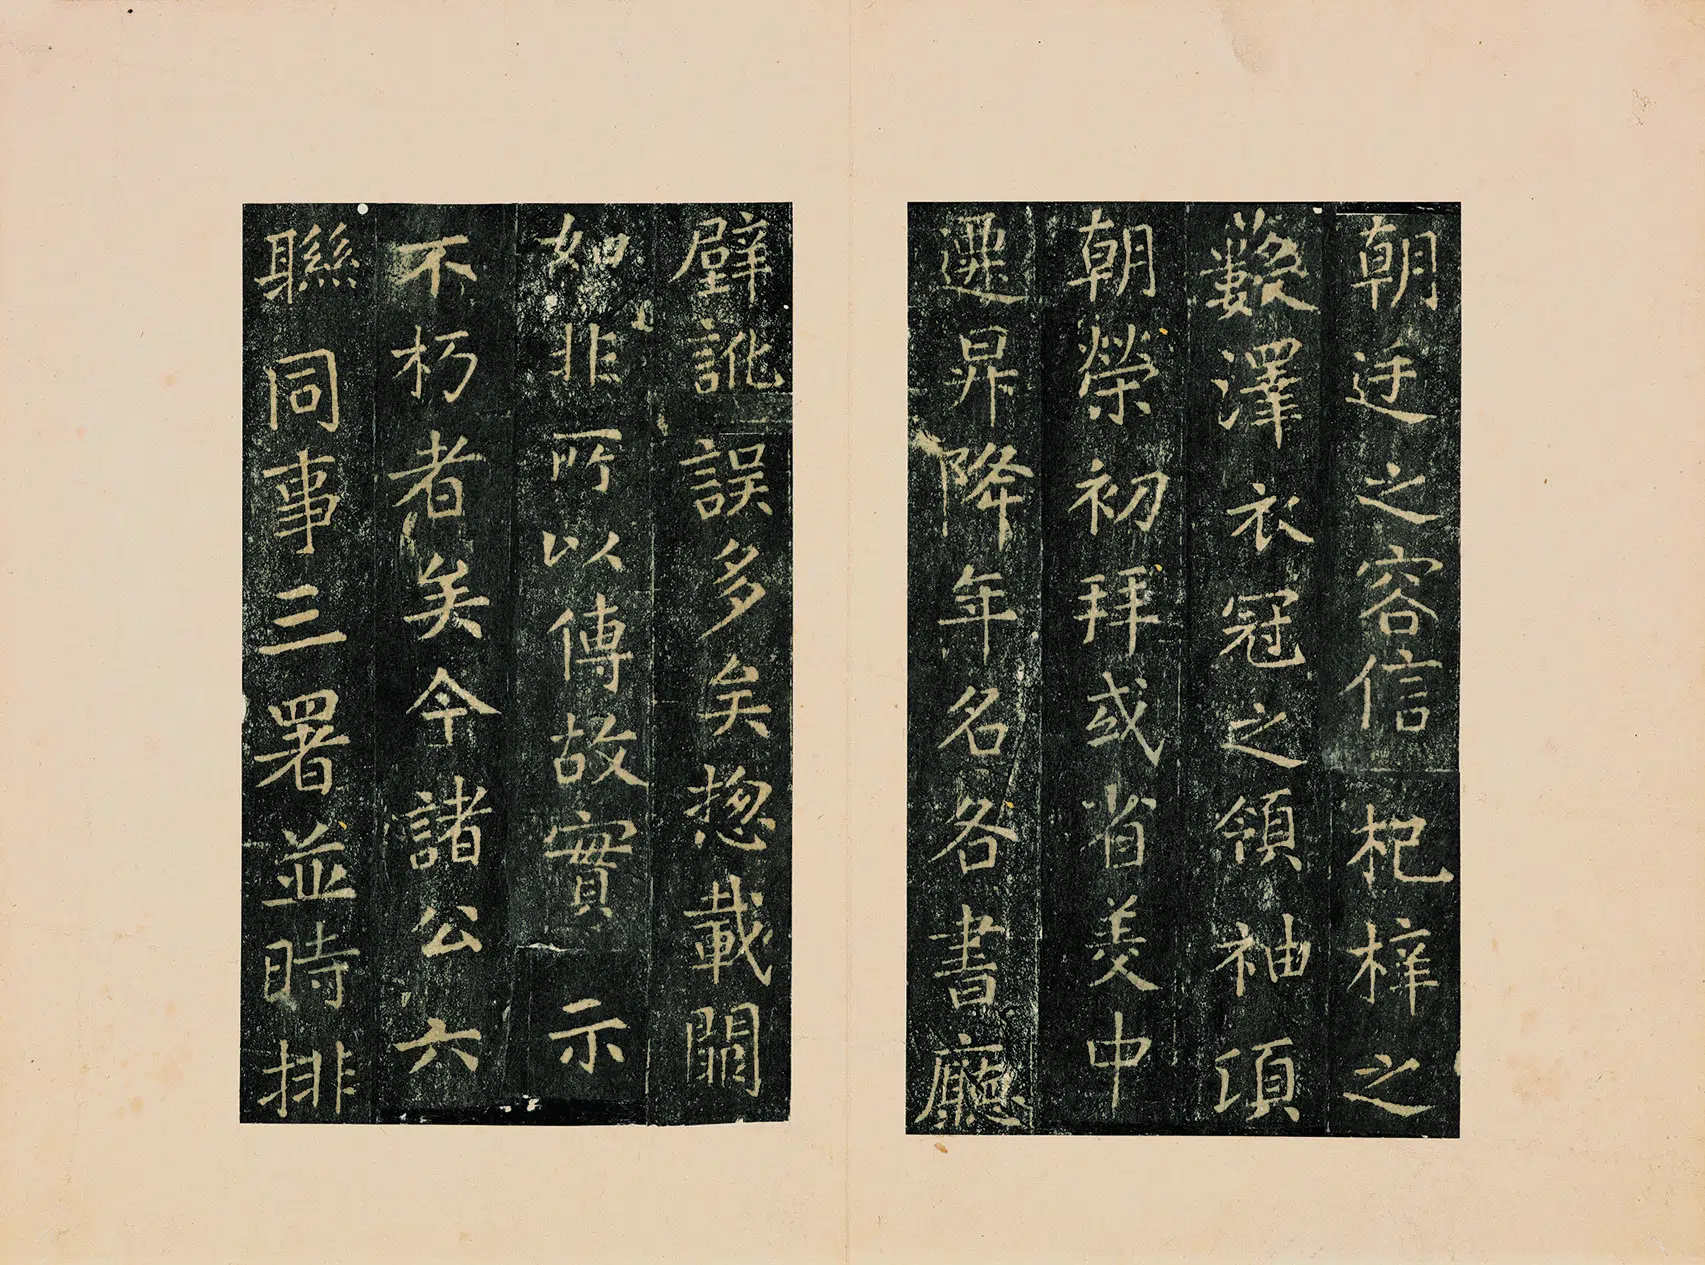 朝廷之容信杞梓之
藪澤衣冠之領袖頃
朝榮初拜或省美中
遷昇降年名各書廳
壁訛誤多矣惣載闕
如非所以傳故實示
不朽者矣今諸公六
聯同事三署並時排